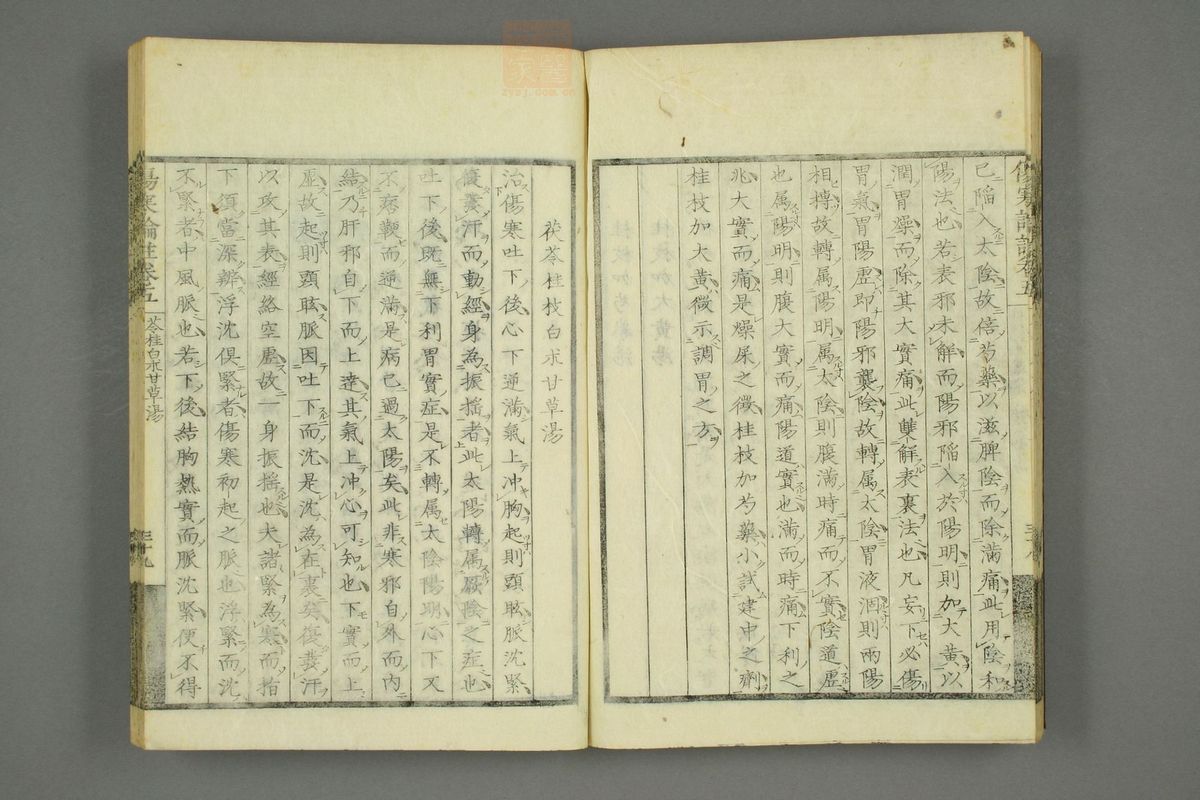 已陷入太陰故倍芍藥以滋脾陰而除滿痛此用陰和
陽法也若表邪未解而陽邪陷入於陽明則加大黃以
潤胃燥而除其大實痛此雙解表裏法也凡妄下必傷
胃氣胃陽虛即陽邪襲陰故轉属太陰胃液涸則兩陽
相搏故轉属陽明属太陰則腹滿時痛而不實陰道虛
也属陽明則腹大實而痛陽道實也滿而時痛下利之
兆大實而痛是燥屎之徵桂枝加芍藥小試建中之劑
桂枝加大黃微示調胃之方
茯苓桂枝白朮甘草湯
治傷寒吐下後心下逆滿氣上冲胸起則頭眩脈沈緊
復裏汗而動經身為振搖者此太陽轉属厥陰之症也
吐下後既無下利胃實症是不轉属太陰陽明心下又
不痞鞕而逆滿是病已過太陽矣此非寒邪自外而內
結乃肝邪自下而上達其氣上冲心可知也下實而上
虛故起則頭眩脈因吐下而沈是沈為在裏矣復發汗
以攻其表經絡空虛故一身振搖也夫諸緊為寒而指
下須當深辨浮沈俱緊者傷寒初起之脈也浮緊而沈
不緊者中風脈也若下後結胸熱實而脈沈緊便不得
傷寒論註卷五
苓桂白朮甘草湯
三十九
zysj.com.cn